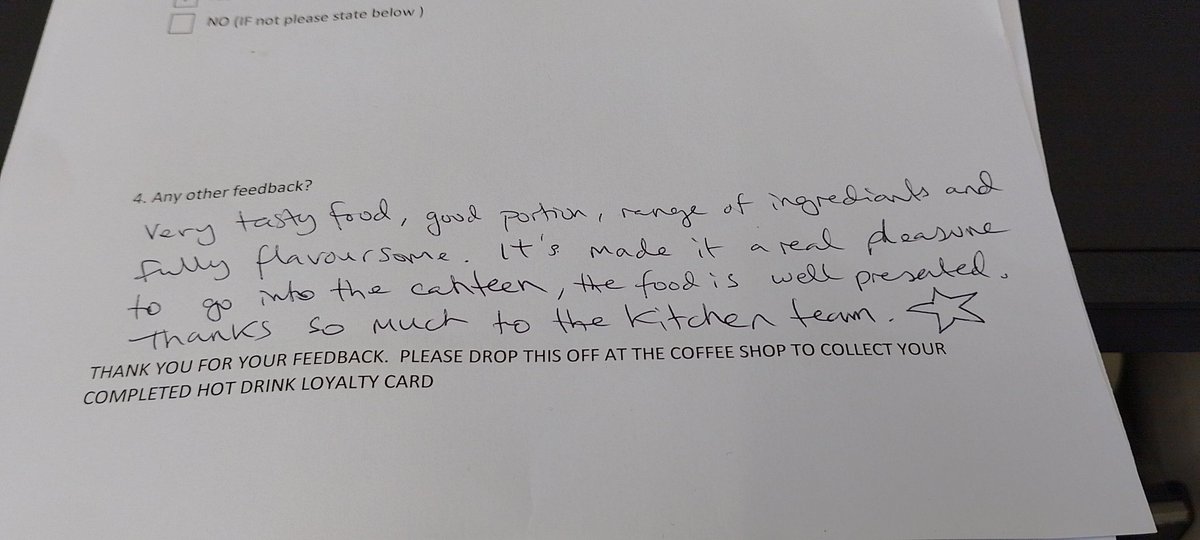 NO (IF not please state below )
4. Any other feedback?
Very tasty food, good portion, range of ingrediants and
fully flavoursome. It's made it a real pleasure
to go into the canteen, the food is well presented.
Thanks so much to the kitchen team.
THANK YOU FOR YOUR FEEDBACK. PLEASE DROP THIS OFF AT THE COFFEE SHOP TO COLLECT YOUR
COMPLETED HOT DRINK LOYALTY CARD